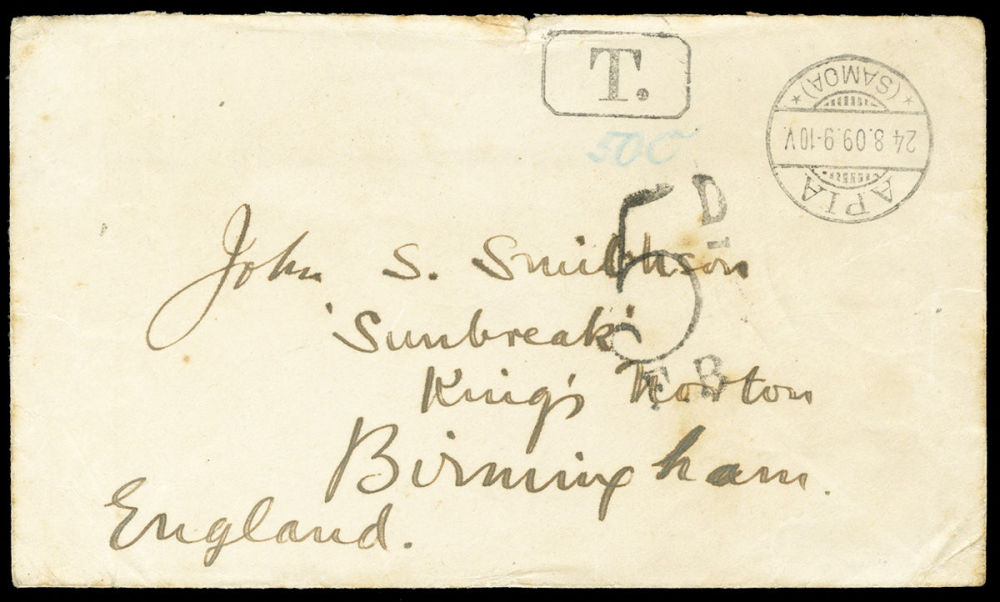 T.
50c
APIA
24.8.09.9-10V
*(SAMOA)*
5D
F.B
John S. Smithson
'Sunbreak'
King's Norton
Birmingham.
England.